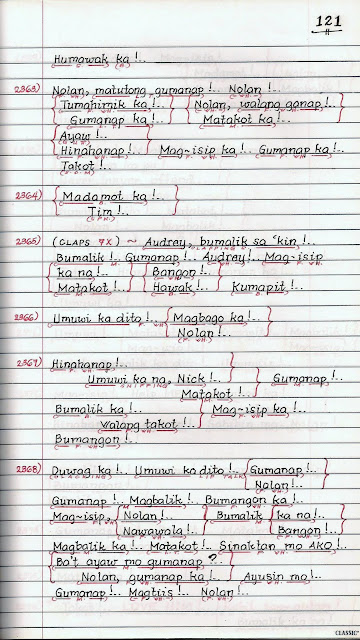 121
Humawak ka !..
2363) Nolan, matutong gumanap !.. Nolan !..
Tumahimik ka !.. Nolan, walang ganap !..
Gumanap ka !.. Matakot ka !..
Ayaw !..
Hinahanap !.. Mag-isip ka !.. Gumanap ka !..
Takot !..
2364) Madamot ka !..
Tim !..
2365) (CLAPS 7X) ~ Audrey, bumalik sa 'kin !..
Bumalik !.. Gumanap !.. Audrey !.. Mag-isip
ka na !.. Bangon !..
Matakot !.. Hawak !.. Kumapit !..
2366) Umuwi ka dito !.. Magbago ka !..
Nolan !..
2367) Hinahanap !..
Umuwi ka na, Nick !.. Gumanap !..
Matakot !..
Bumalik ka !.. Mag-isip ka !..
Walang takot !..
Bumangon !..
2368) Duwag ka !.. Umuwi ka dito !.. Gumanap !..
Nolan !..
Gumanap !.. Magbalik !.. Bumangon ka !..
Mag-isip, Nolan !.. Bumalik ka na !..
Nawawala !.. Bangon !..
Magbalik ka !.. Matakot !.. Sinaktan mo AKO !..
Ba't ayaw mo gumanap ?..
Nolan, gumanap ka !.. Ayusin mo !..
Gumanap !.. Magtiis !.. Nolan !..